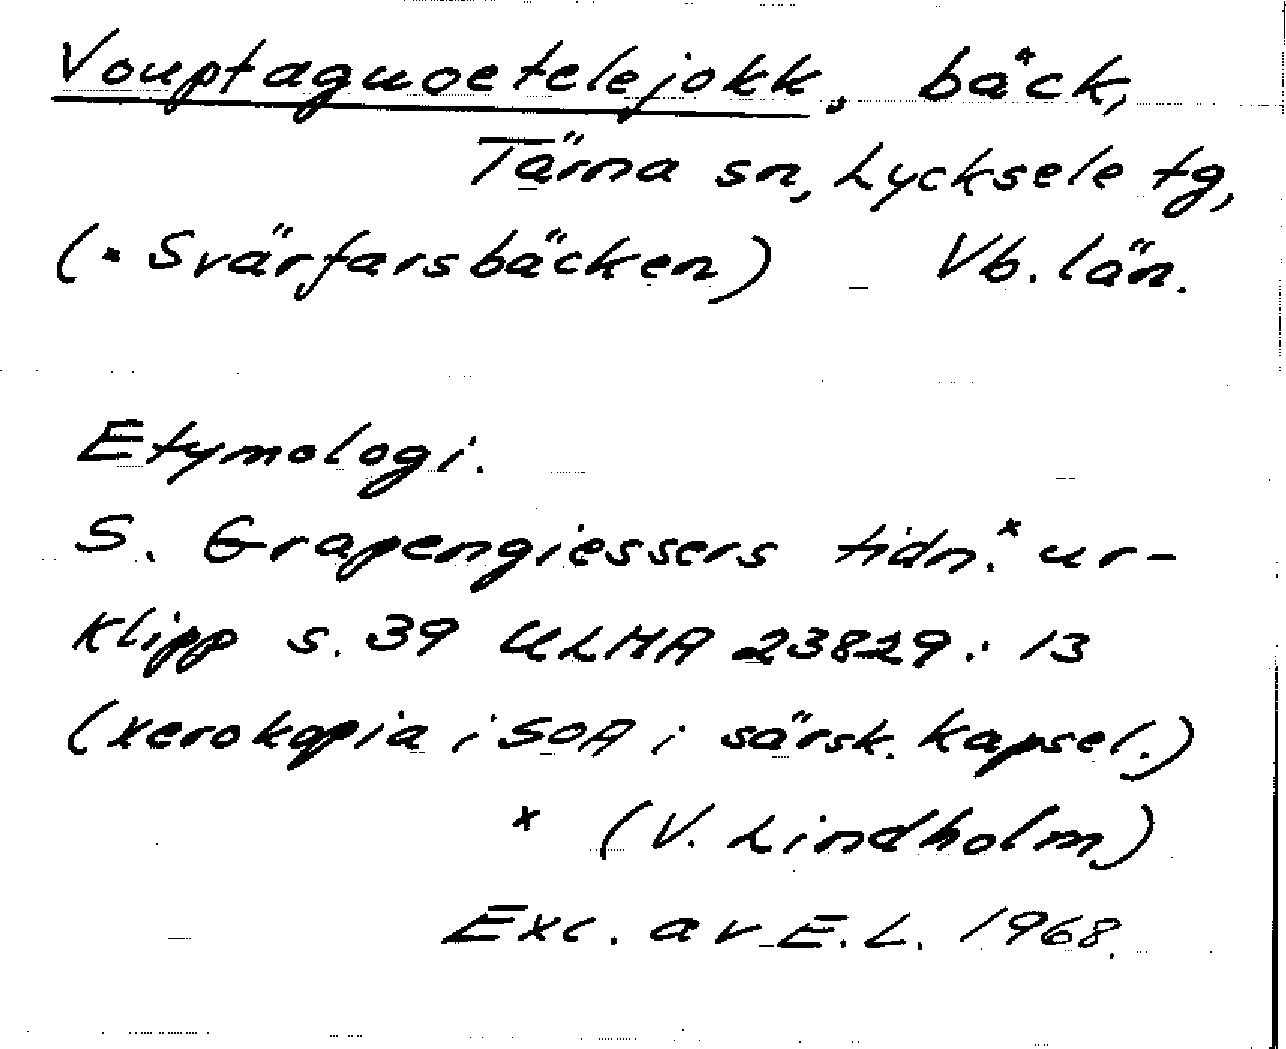 Vouptaguoetelejokk, bäck,
Tärna sn, Lycksele tg,
(= Svärfarsbäcken) Vb. län.
Etymologi.
S. Grapengiessers tidn.x ur-
klipp s. 39 ULMA 23829: 13
(xerokopia i SOA i särsk. kapsel.)
x (V. Lindholm)
Exc. av E.L. 1968.